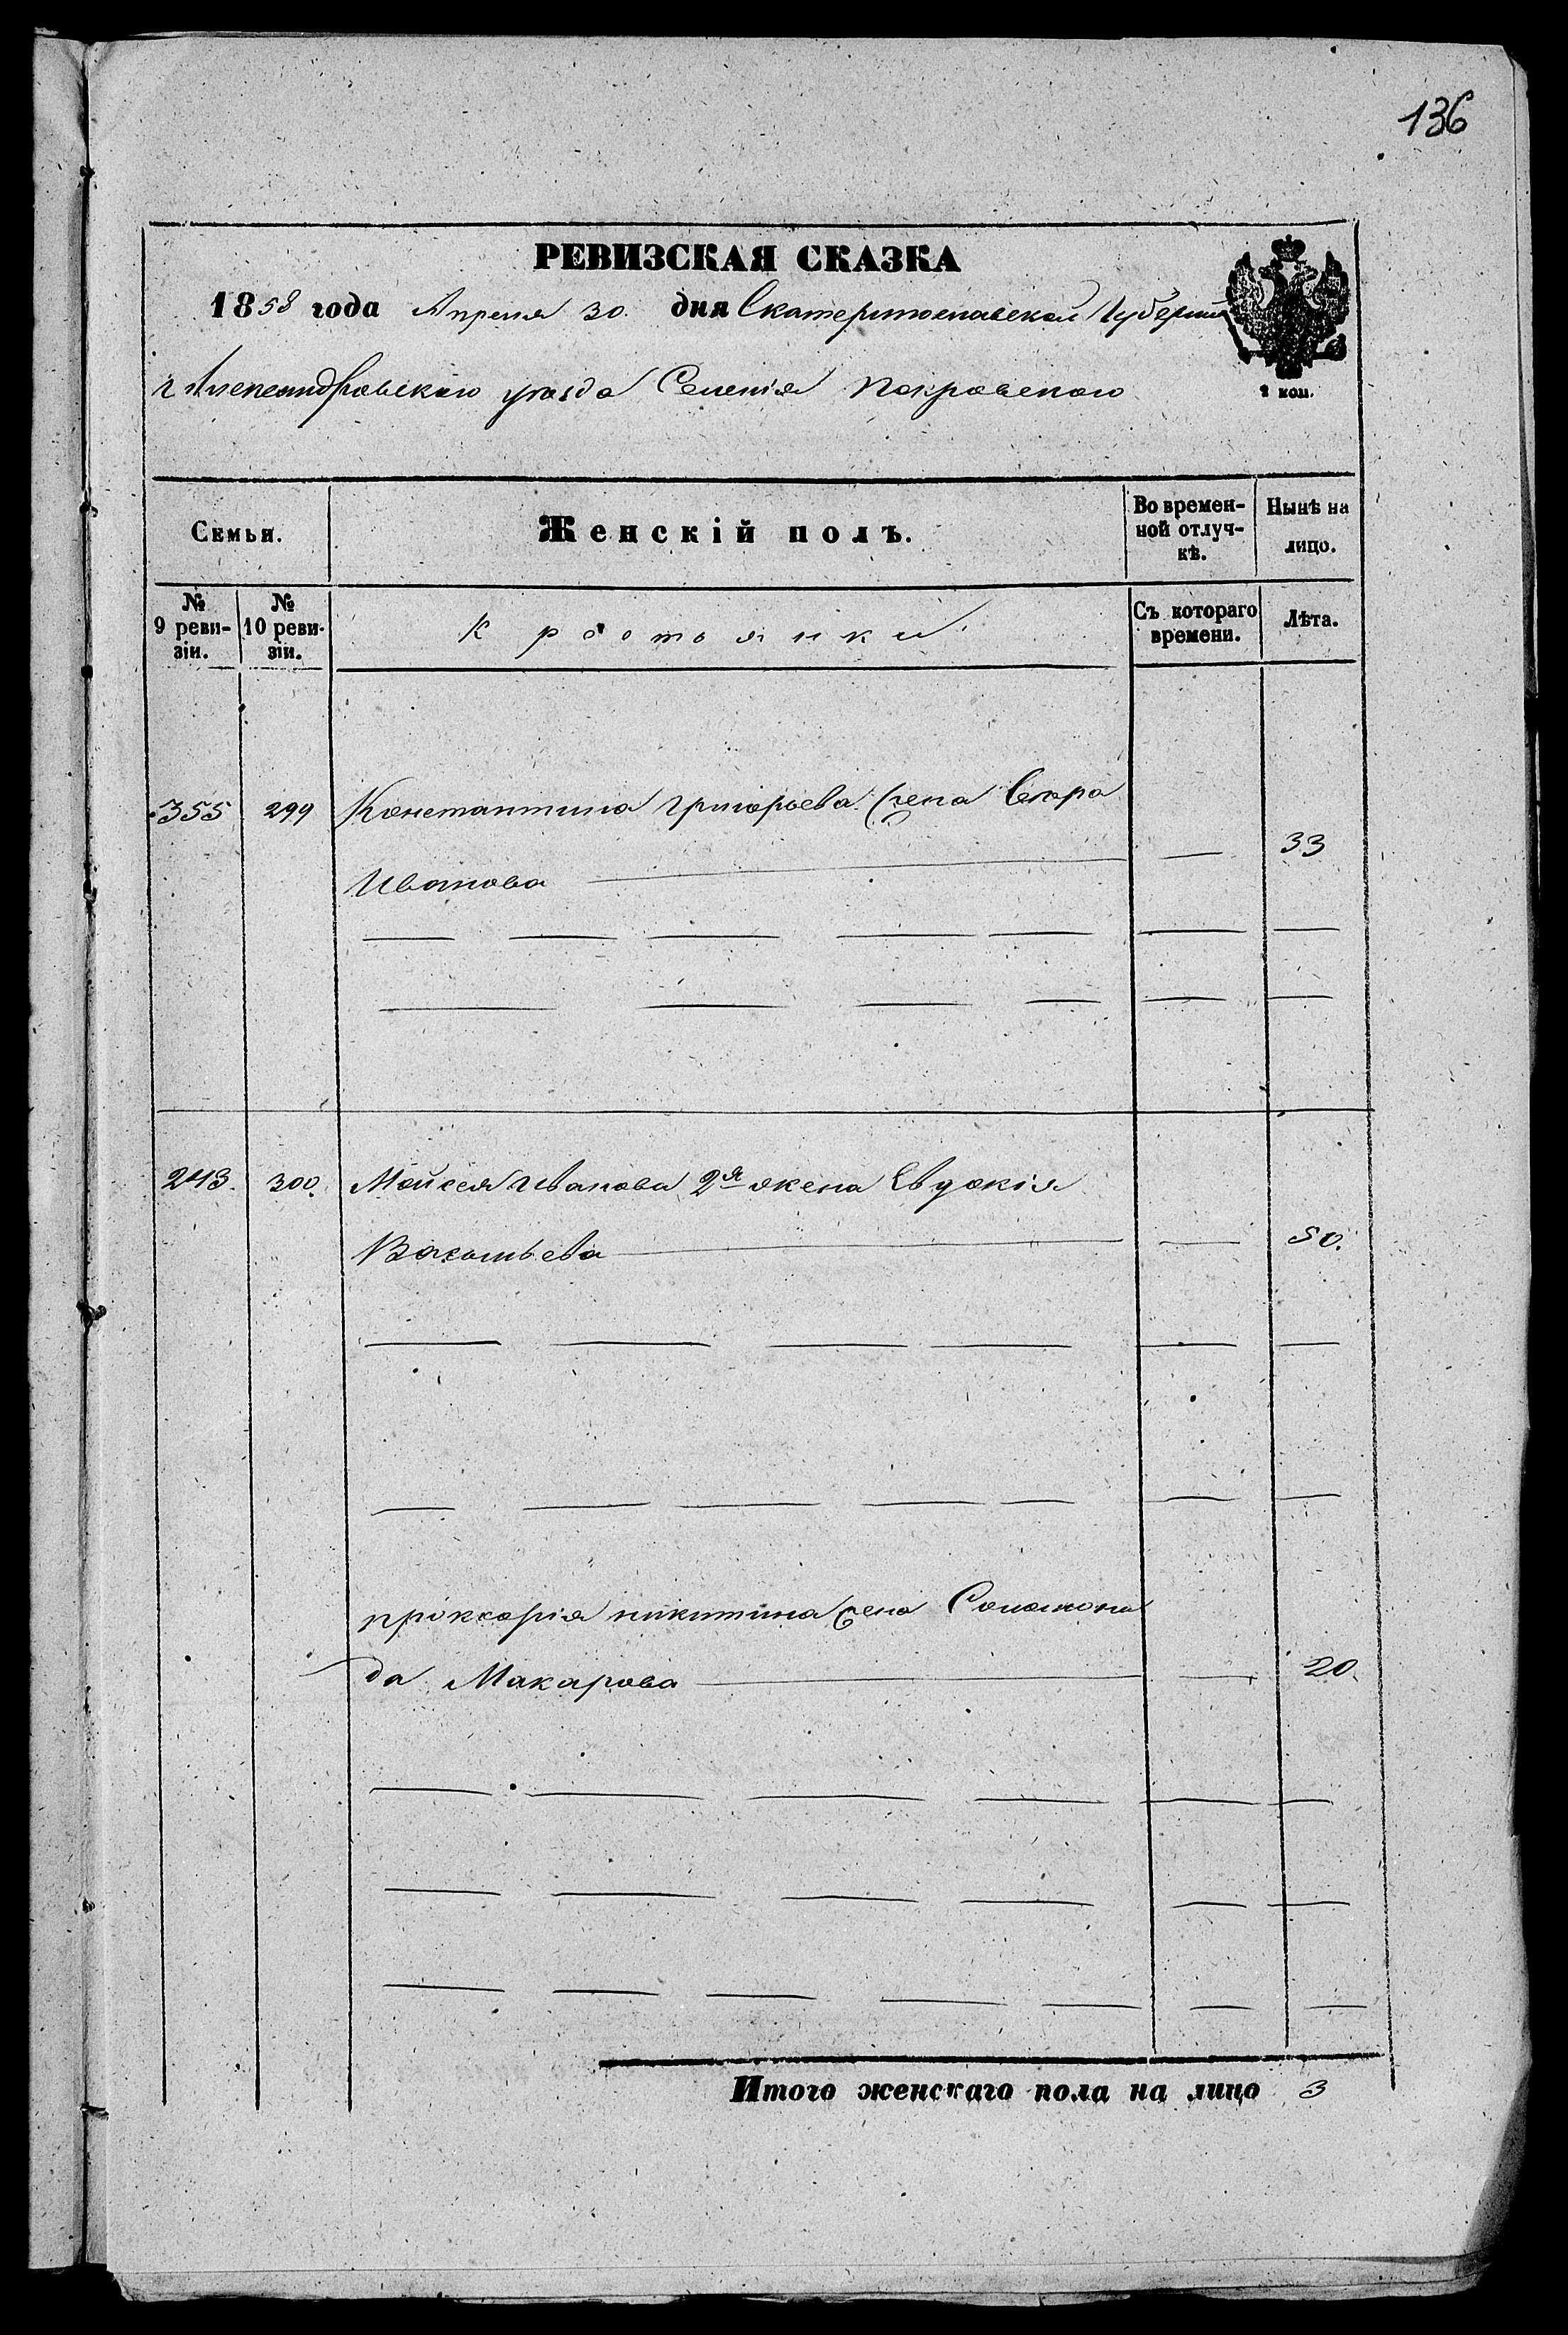 136
РЕВИЗСКАЯ СКАЗКА
1858 года Апреля 30 дня Екатеринославской Губерніи
Александровскаго уезда Селенія Покровскаго
2 коп.
Семьи.
Женскій полъ.
Во времен-
ной отлуч-
кѣ.
Нынѣ на
лицо.
№
9 реви-
зіи.
№
10 реви-
зіи.
Крестьянки
Съ котораго
времени.
Лѣта.
355 299 Константина григорьева жена
Иванова — — 33
243. 300. Мойсея Иванова 2я жена Евдокія
Васильева — — 50.
никитина жена Соломони
да Макарова — — 20.
Итого женскаго пола на лицо 3